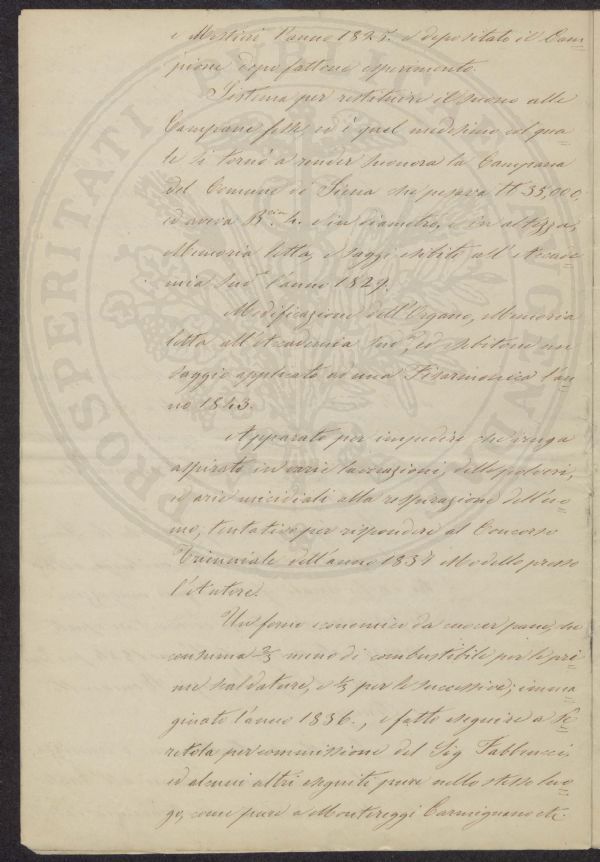 e Mestieri l'anno 1825. e depositato il Cam=
pione dopo fattone esperimento.
Sistema per restituire il suono alle
Campane fesse ed è quel medesimo col qua=
le si tornò a render sonora la Campana
del Comune di Siena che pesava ℔ 35,000,
ed aveva B. 4. di diametro, e in altezza,
Memoria letta, e saggi esibiti all'Accade=
mia sud.ᵃ l'anno 1829.
Modificazione dell'Organo, Memoria
letta all'Accademia sud.ᵃ, ed esibitone un
saggio applicato ad una Fisarmonica l'an=
no 1843.
Apparato per impedire che venga
aspirato in varie lavorazioni, delle polveri,
ed arie micidiali alla respirazione dell'uo=
mo, tentativo per rispondere al Concorso
Triennale dell'anno 1834 Modello presso
l'Autore.
Un forno economico da cuocer pane, che
consuma 2/3 meno di combustibile per le pri=
me scaldature, e per le successive; imma=
ginato l'anno 1836., e fatto eseguire a Pe=
retola per commissione del Sig Fabbrucci,
ed alcuni altri eseguiti pure nello stesso luo=
go, come pure a Montereggi Carmignano etc.
PROSPERITATI PUBLICAE AUGENDAE